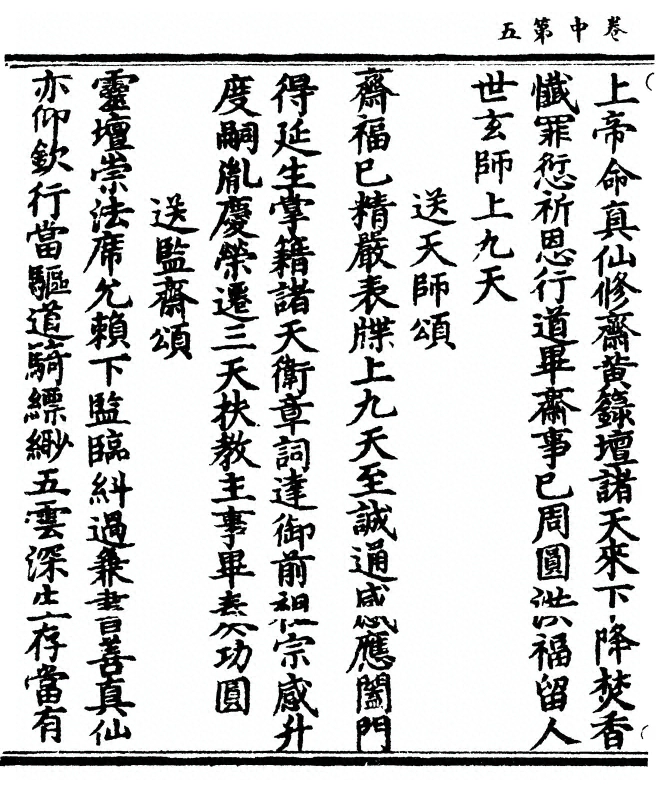 卷中第五
上帝命真仙修齋黄籙壇諸天來下降焚香
懺罪愆祈恩行道畢齋事已周圓洪福留人
世玄師上九天
送天師頌
齋福已精嚴表牒上九天至誠通感應闔門
得延生掌籍諸天衛章詞達御前祖宗咸升
度嗣胤慶榮遷三天扶教主事畢奏功圓
送監齋頌
靈壇崇法席允賴下監臨糾過兼書善真仙
亦仰欽行當驅道騎縹緲五雲深生存當有